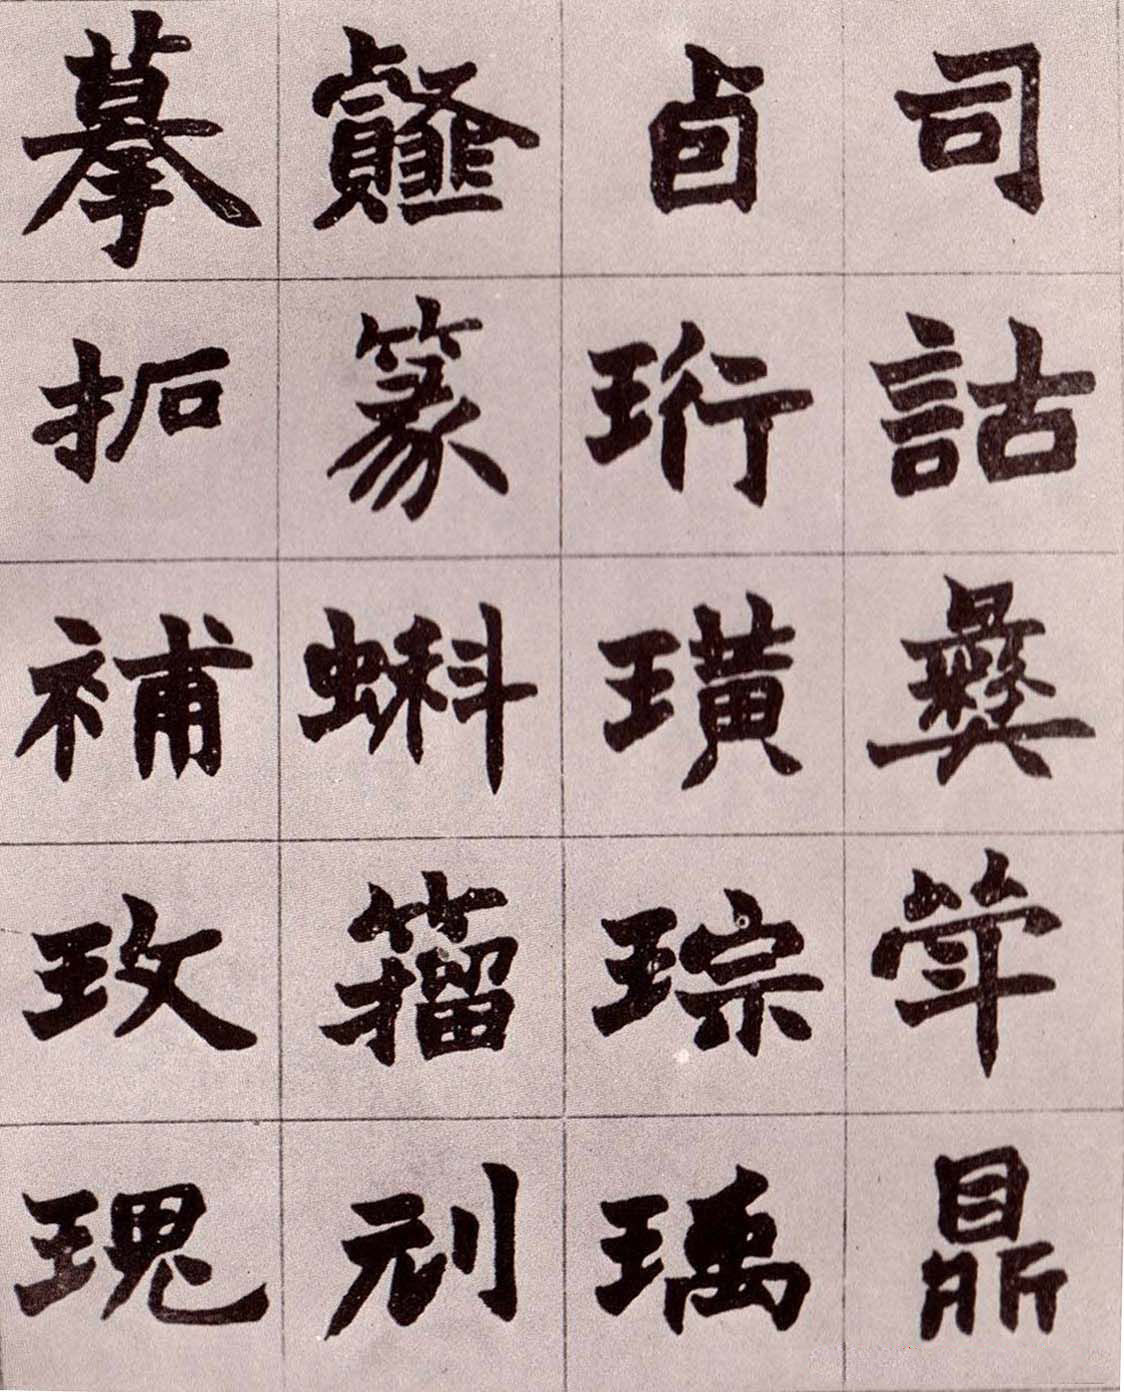 司詁彝斝鼎
卣珩璜琮瑀
篆蝌籀刓
摹拓補玫瑰